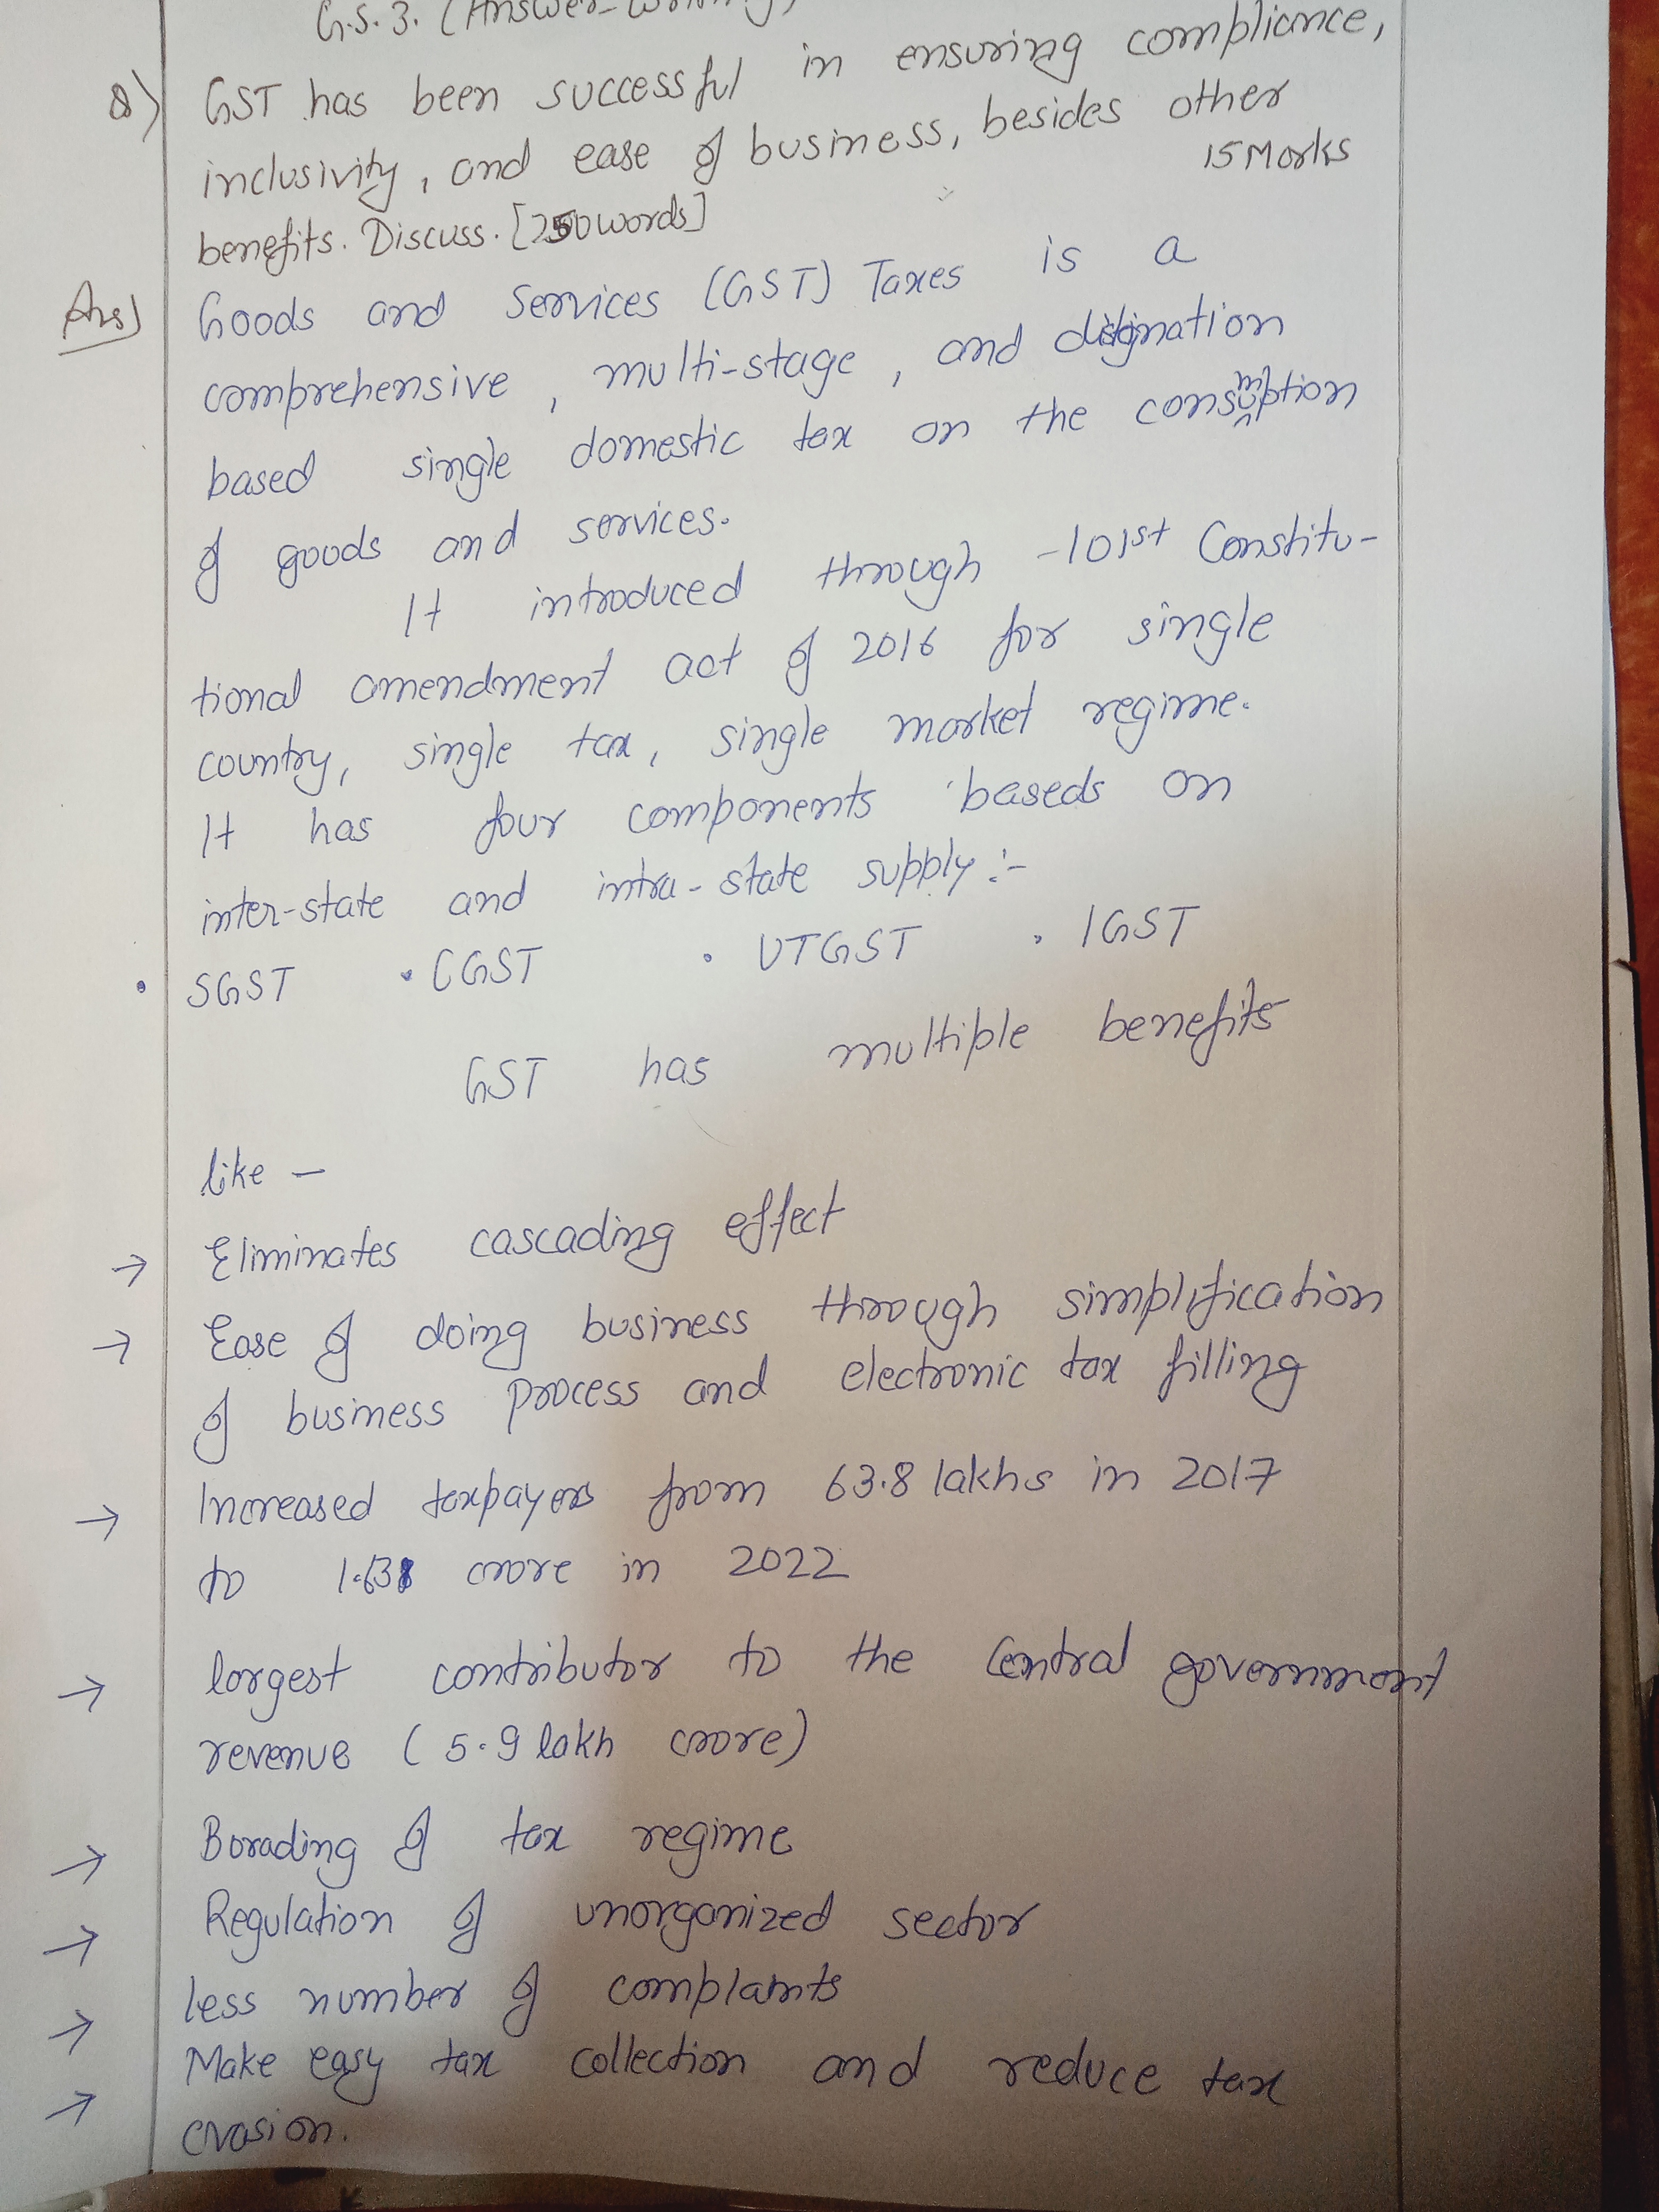 G.S. 3. (Answer-Writing)
Q) GST has been successful in ensuring compliance,
inclusivity, and ease of business, besides other
benefits. Discuss. [250 words] 15 Marks
Ans) Goods and Services (GST) Taxes is a
comprehensive, multi-stage, and
based single domestic tax on the consumption
of goods and services.
It introduced through -101st Constitu-
tional amendment act of 2016 for single
country, single tax, single market regime.
It has four components baseds on
inter-state and intra-state supply:-
• SGST • CGST • UTGST • IGST
GST has multiple benefits
like -
→ Eliminates cascading effect
→ Ease of doing business through simplification
of business process and electronic tax filling
→ Increased taxpayers from 63.8 lakhs in 2017
to crore in 2022
→ largest contributor to the Central government
revenue (5.9 lakh crore)
→ Borading of tax regime
→ Regulation of unorganized sector
→ less number of complaints
→ Make easy tax collection and reduce tax
evasion.